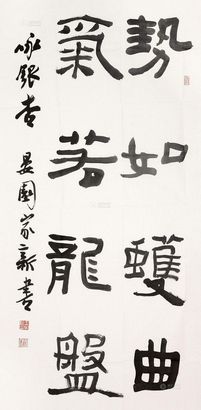 勢如蠖曲
氣若龍盤
咏銀杏 晏國家新書